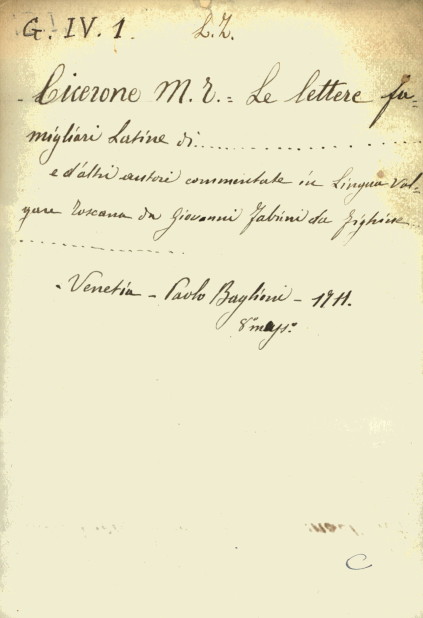 G. IV. 1. L.Z.
Cicerone M. T. = Le lettere fa=
migliari Latine di
e d'altri autori commentate in Lingua Vol-
gare Toscana da Giovanni Fabrini da Fighine
- Venetia - Paolo Baglioni - 1711.
8° magg.e
C